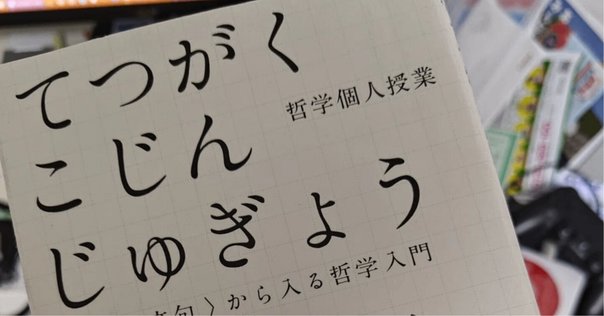 てつがく
哲学個人授業
こじん
じゅぎょう
句〉から入る哲学入門